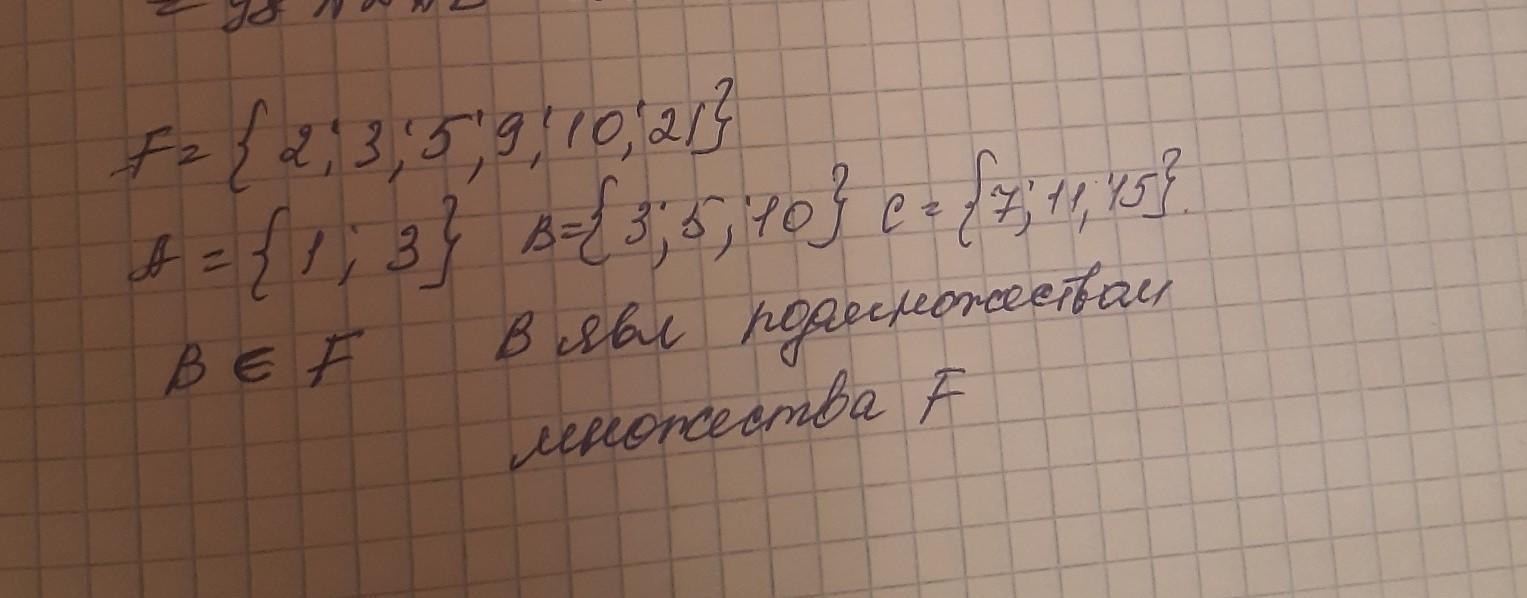 F = { 2; 3; 5; 9; 10; 21}
A = { 1; 3} B={3; 5; 10} C = {7; 11; 15}.
B ∈ F В явл подмножеством
множества F